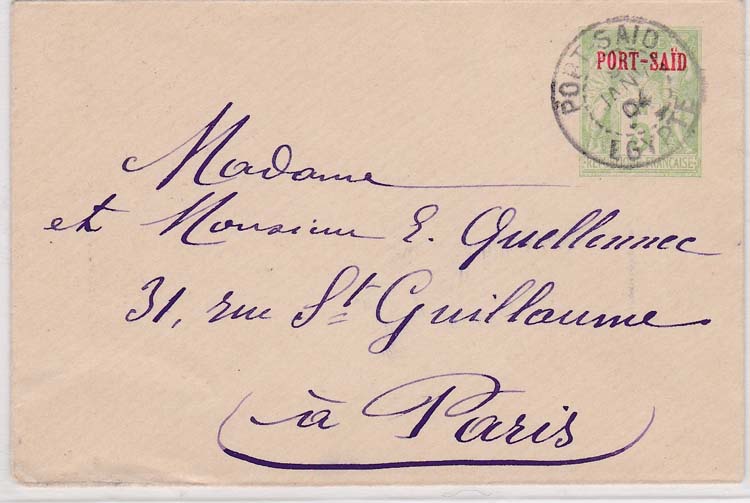 PORT-SAID
PORT-SAÏD
JANV
EGYPTE
REPUBLIQUE FRANCAISE
Madame
et Monsieur E. Quellennec
31, rue St Guillaume
à Paris